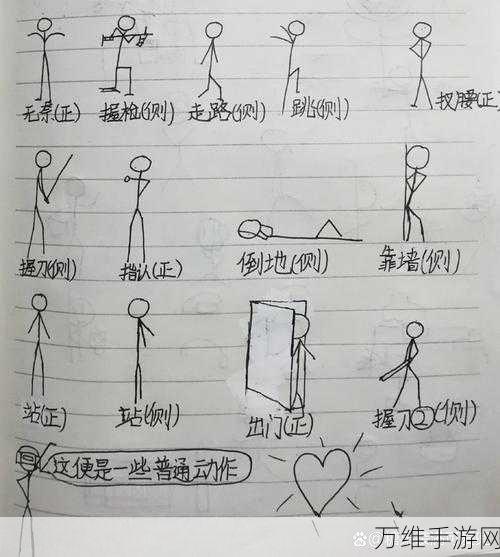 无奈(正) 握枪(侧) 走路(侧) 跳(侧) 扠腰(正)
握刀(侧) 指认(正) 倒地(侧) 靠墙(侧)
站(正) 站(侧) 出门(正) 握刀②(侧)
这便是一些普通动作
万维手游网